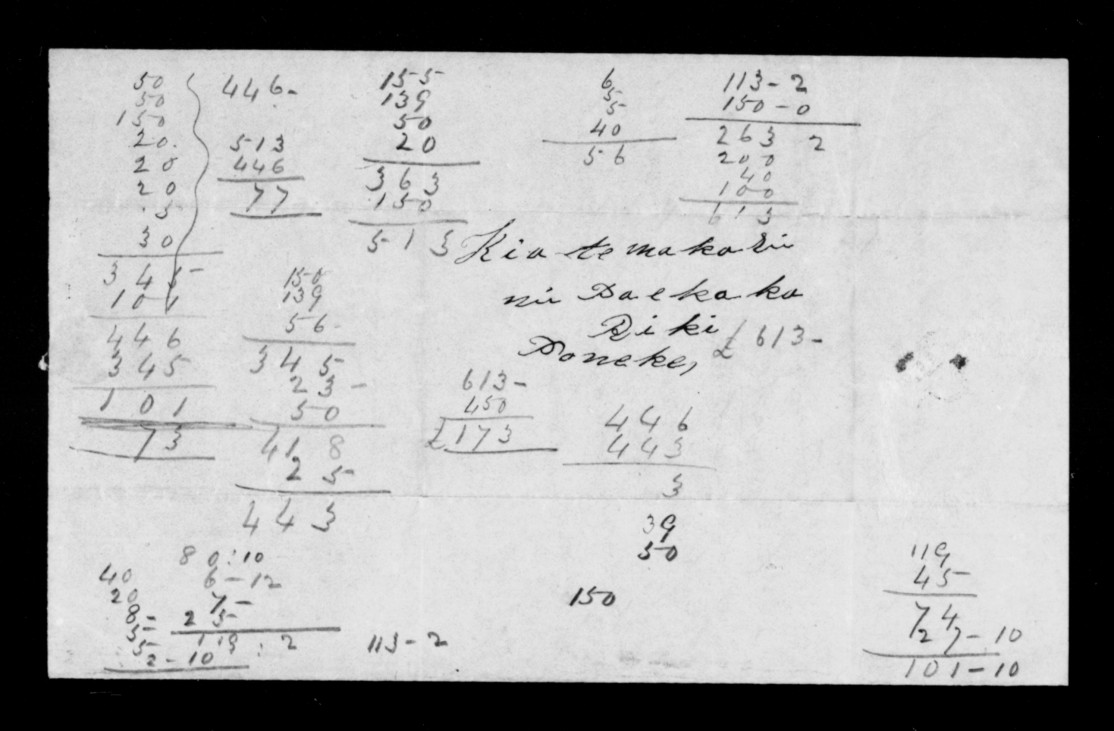 50
50
150
20.
20
20
5
30
345
101
446
345
101
73
446-
513
446
77
155
139
50
20
363
150
513
6
5
5
40
56
113-2
150-0
263 2
200
40
100
613
Kia te makarini
nui
Riki
Poneke,
£613-
150
139
56
345
23-
50
418
25
443
613-
450
£173
446
443
3
39
50
150
40
20
8-
5-
5
2-10
80:10
6-12
7-
25
119:2
113-2
119
45
74
27-10
101-10